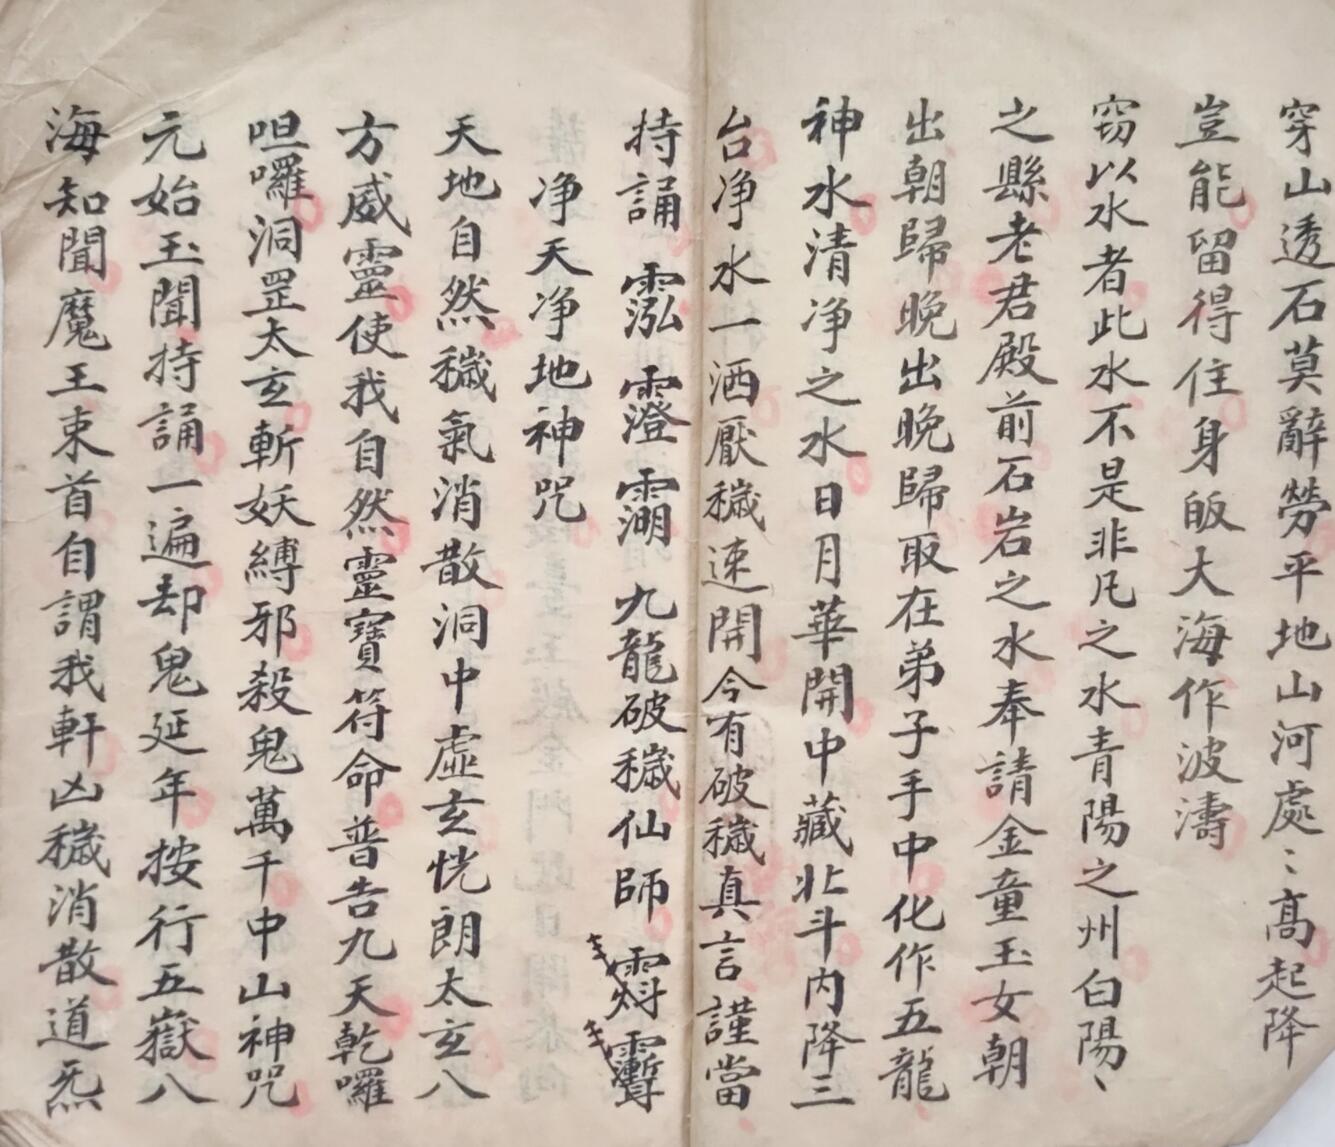 穿山透石莫辭勞平地山河處〻高起降
豈能留得住身皈大海作波濤
窃以水者此水不是非凡之水青陽之州白陽〻
之縣老君殿前石岩之水奉請金童玉女朝
出朝歸晚出晚歸取在弟子手中化作五龍
神水清净之水日月華開中藏北斗内降三
台净水一洒厭穢速開今有破穢真言謹當
持誦 九龍破穢仙師
净天净地神咒
天地自然穢氣消散洞中虛玄恍朗太玄八
方威靈使我自然靈寶符命普告九天乾囉
呾囉洞罡太玄斬妖縛邪殺鬼萬千中山神咒
元始玉聞持誦一遍却鬼延年按行五嶽八
海知聞魔王束首自謂我軒凶穢消散道炁